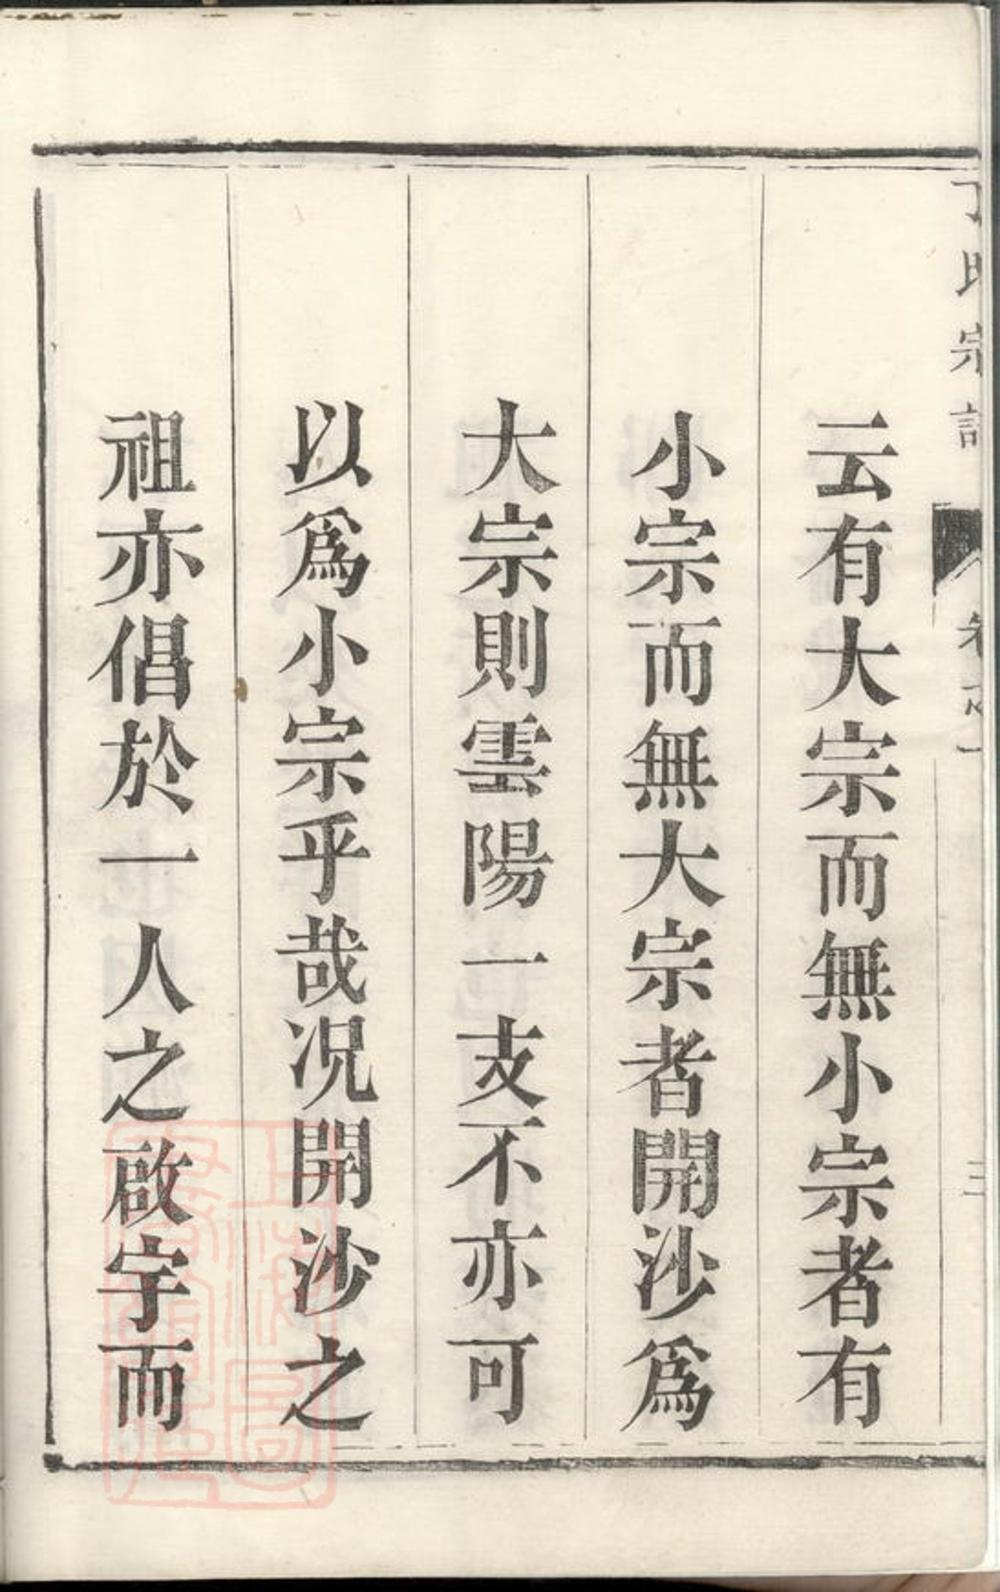 云有大宗而無小宗者有
小宗而無大宗者開沙爲
大宗則雲陽一支不亦可
以爲小宗乎哉况開沙之
祖亦倡於一人之啟宇而